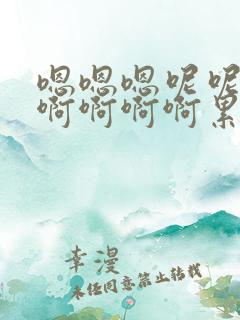 嗯嗯嗯呢呢
啊啊啊啊累
李漫
未经同意禁止转载